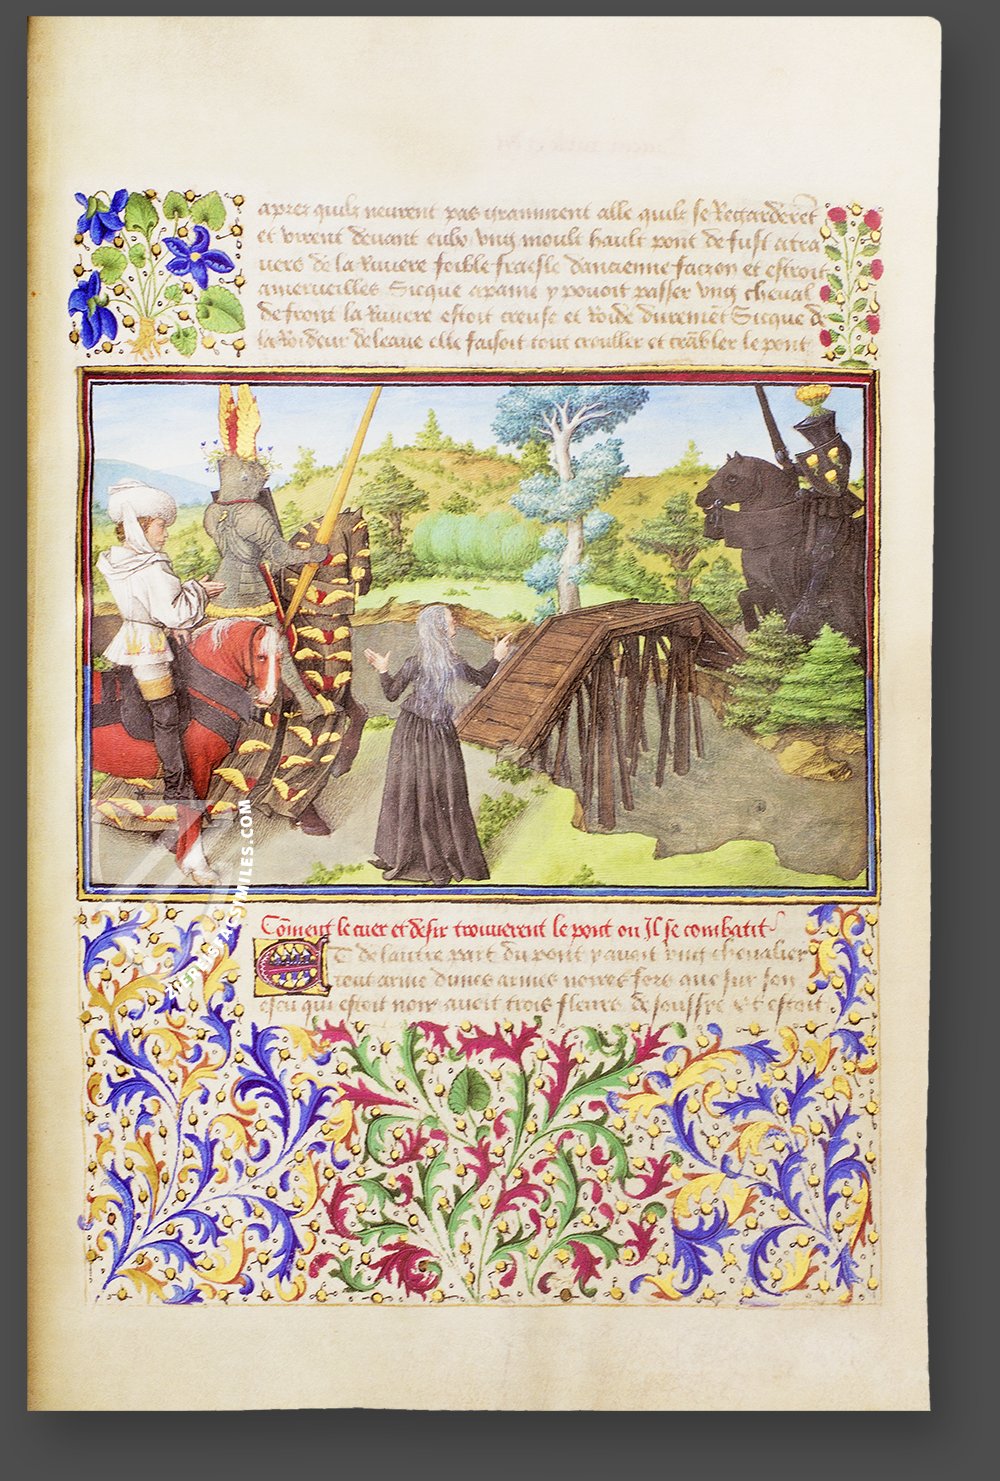 apres quilz neurent pas grammment alle quilz se Regarderēt
et virent devant eulx vng moult hault pont de fust a tra
vers de la Riuiere foible fraesle dancienne faczon et estroit
amerueilles Sicque apaine y pouoit passer vng cheual
de front la Riuiere estoit creuse et Roide duremēt Sicque de
la Roideur de leaue elle faisoit tout crouller et trābler le pont
Cōment le cuer et desir trouuerent le pont ou Il se combatit
ET de lautre part du pont y auoit vng cheualier
tout arme dunes armes noires fors que sur son
escu qui estoit noir auoit trois fleurs de soussye et estoit
FACSIMILES.COM